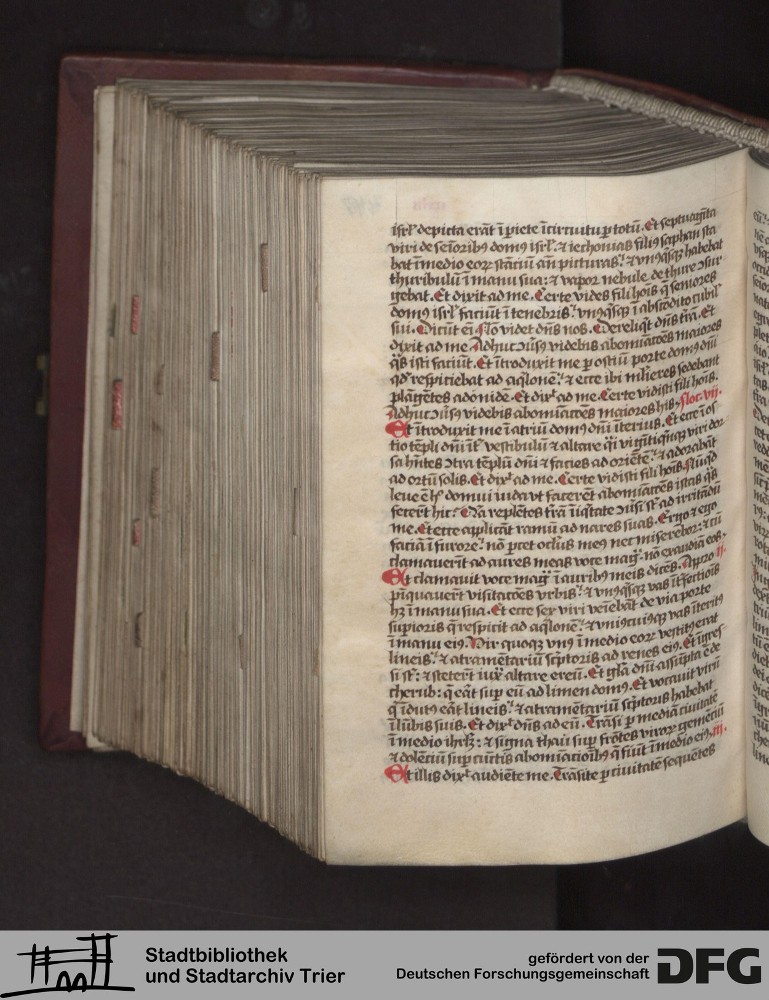 isrł depicta erāt ī piete ī circuitu p totū. Et septuagīta
viri de sēioribꝰ domꝰ isrł. ⁊ iechonias filiꝰ saphan sta
bat ī medio eoꝝ stāciū añ picturas. ⁊ vnꝰqsqꝫ habebat
thuribulū ī manu sua: ⁊ vapor nebule de thure ↄsur
gebat. Et dixit ad me. Certe vides fili hoīs q̄ seniores
domꝰ isrł faciūt ī tenebris. vnꝰqsqꝫ ī abscōdito cubił
sui. Dicūt eī. Nō videt dñs nos. Dereliqt dñs trā. Et
dixit ad me. Adhuc ↄūsꝰ videbis abomīacōes maiores
qs isti faciūt. Et ītroduxit me p ostiū porte domꝰ dñi
qd̓ respiciebat ad aqlonē. ⁊ ecce ibi mlieres sedebant
plāgētes adonidē. Et dix̓ ad me. Certe vidisti fili hoīs.
Adhuc ↄūsꝰ videbis abomīacōes maiores his.
Et ītroduxit me ī atriū domꝰ dñi īterius. Et ecce ī os
tio tēpli dñi īt̓ vestibulū ⁊ altare qi vigītiqnqꝫ viri dor
sa hñtes ↄtra tēplū dñi ⁊ facies ad oriētē. ⁊ adorabāt
ad ortū solis. Et dix̓ ad me. Certe vidisti fili hoīs. Nūqd
leue ē h̓ domui iuda vt facerēt abomīacōes istas qs
fecerūt hic. Qa replētes trā īiqtate ↄūsi st̓ ad irritādū
me. Et ecce applicāt ramū ad nares suas. Ergo ⁊ ego
faciā ī furore. nō pcet oclus meꝰ nec miserebor: ⁊ cū
clamauerīt ad aures meas voce mag̓. nō exaudiā eos.
Et clamauit voce mag̓ ī auribꝰ meis dicēs. Appro
pīquauerūt visitacōes vrbis. ⁊ vnꝰqsqꝫ vas īt̓fectiōis
hꝫ ī manu sua. Et ecce sex viri veiebāt de via porte
supioris q̄ respicit ad aqlonē. ⁊ vniꝰcuiꝰqꝫ vas īteritꝰ
ī manu eiꝰ. Vir quoqꝫ vnꝰ ī medio eoꝝ vestitꝰ erat
lineis. ⁊ atramētariū scptoris ad renes eiꝰ. Et īgres
si st̓: ⁊ steterūt iux̓ altare ereū. Et gła dñi assūpta ē de
cherub: q̄ eāt sup eū ad limen domꝰ. Et vocauit virū
q̄ īdutꝰ eāt lineis. ⁊ atramētariū scptoris habebat
ī lūbis suis. Et dix̓ dñs ad eū. Trāsi p mediā ciuitatē
ī medio ihrłꝫ: ⁊ signa thau sup frōtes viroꝝ gemēciū
⁊ dolēciū sup cūctis abomīacioībꝰ q̄ fiūt ī medio eiꝰ. iii.
Et illis dix̓ audiēte me. Trāsite p ciuitatē sequētes
Stadtbibliothek
und Stadtarchiv Trier
gefördert von der
Deutschen Forschungsgemeinschaft
DFG